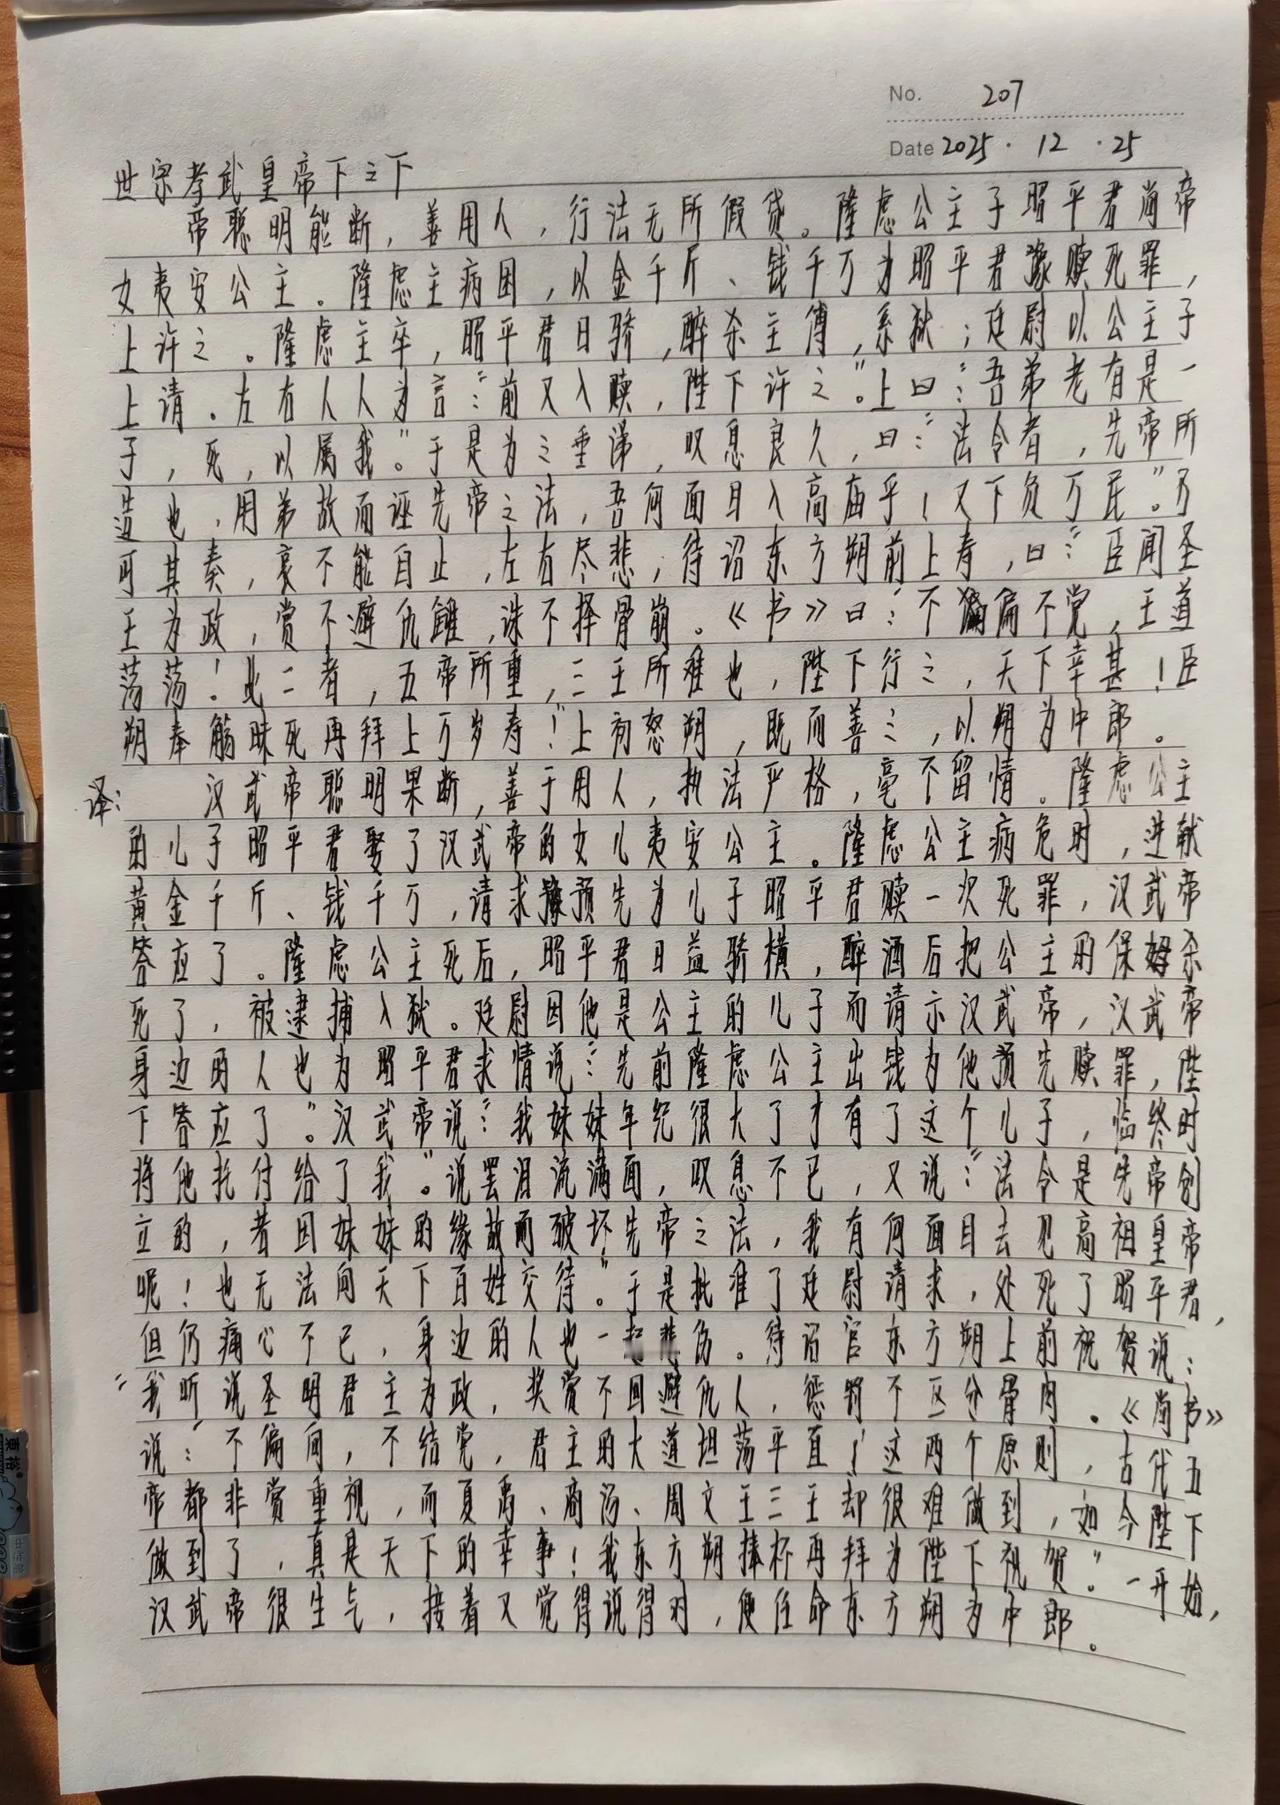 No. 207
Date 2025 · 12 · 25
世宗孝武皇帝下之下
帝聪明能断，善用人，行法无所假贷。隆虑公主子昭平君尚帝
女夷安公主。隆虑主病困，以金千斤、钱千万为昭平君豫赎死罪，
上许之。隆虑主卒，昭平君日骄，醉杀主傅，系狱；廷尉以公主子
上请。左右人人为言：“前又入赎，陛下许之”。上曰：“吾弟老有是一
子，死，以属我”。于是为之垂涕，叹息良久，曰：“法令者，先帝所
造也，用弟故而诬先帝之法，吾何面目入高庙乎！又下负万民”。乃
可其奏，哀不能自止，左右尽悲，待诏东方朔前上寿，曰：“臣闻圣
王为政，赏不避仇雠，诛不择骨崩。《书》曰：‘不偏不党，王道
荡荡！此二者，五帝所重，三王所难也，陛下行之，天下幸甚！臣
朔奉觞昧死再拜上万岁寿！”上初怒朔，既而善之，以朔为中郎。
译：汉武帝聪明果断，善于用人，执法严格，毫不留情。隆虑公主
的儿子昭平君娶了汉武帝的女儿夷安公主。隆虑公主病危时，进献
黄金千斤、钱千万，请求预先为儿子昭平君赎一次死罪，汉武帝
答应了。隆虑公主死后，昭平君日益骄横，醉酒后把公主的保姆杀
死了，被逮捕入狱。廷尉因他是公主的儿子而请示汉武帝，汉武帝
身边的人也为昭平君求情说：“先前隆虑公主出钱为他预先赎罪，陛
下答应了”。汉武帝说：“我妹妹年纪很大了才有了这个儿子，临终时
将他托付给了我”。说罢泪流满面，叹息不已，又说：“法令是先帝创
立的，若因妹妹的缘故而破坏先帝之法，我有何面目去见高祖皇帝
呢！也无法向天下百姓交待”。于是批准了廷尉请求，处死了昭平君，
但仍痛心不已，身边的人也一起悲伤。待诏官东方朔上前祝贺说：
“我听说圣明君主为政，奖赏不回避仇人，惩罚不区分骨肉。《尚书》
说：‘不偏向，不结党，君主的大道坦荡平直！’这两个原则，古代五
帝都非赏重视，而夏禹、商汤、周文王三王却很难做到，如今陛下
做到了，真是天下的幸事！我东方朔捧杯再拜为陛下祝贺”。一开始，
汉武帝很生气，接着又觉得说得对，便任命东方朔为中郎。